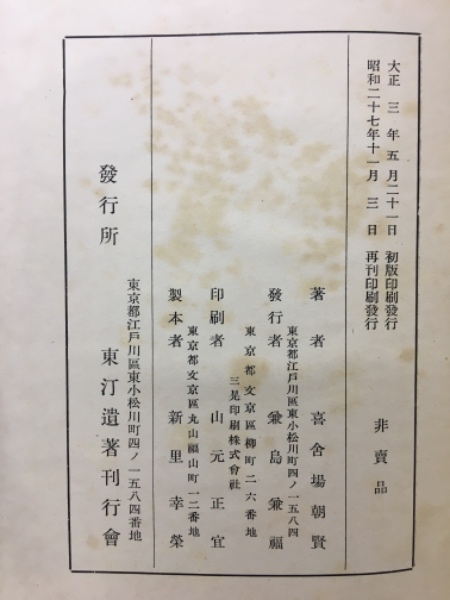 大正三年五月二十一日 初版印刷發行
昭和二十七年十一月三日 再刊印刷發行
非賣品
著者 喜舍場朝賢
東京都江戶川區東小松川町四ノ一五八四
發行者 兼島兼福
東京都文京區柳町二六番地
三是印刷株式會社
印刷者 山元正宜
東京都文京區丸山福山町一二番地
製本者 新里幸榮
東京都江戶川區東小松川町四ノ一五八四番地
發行所 東汀遺著刊行會